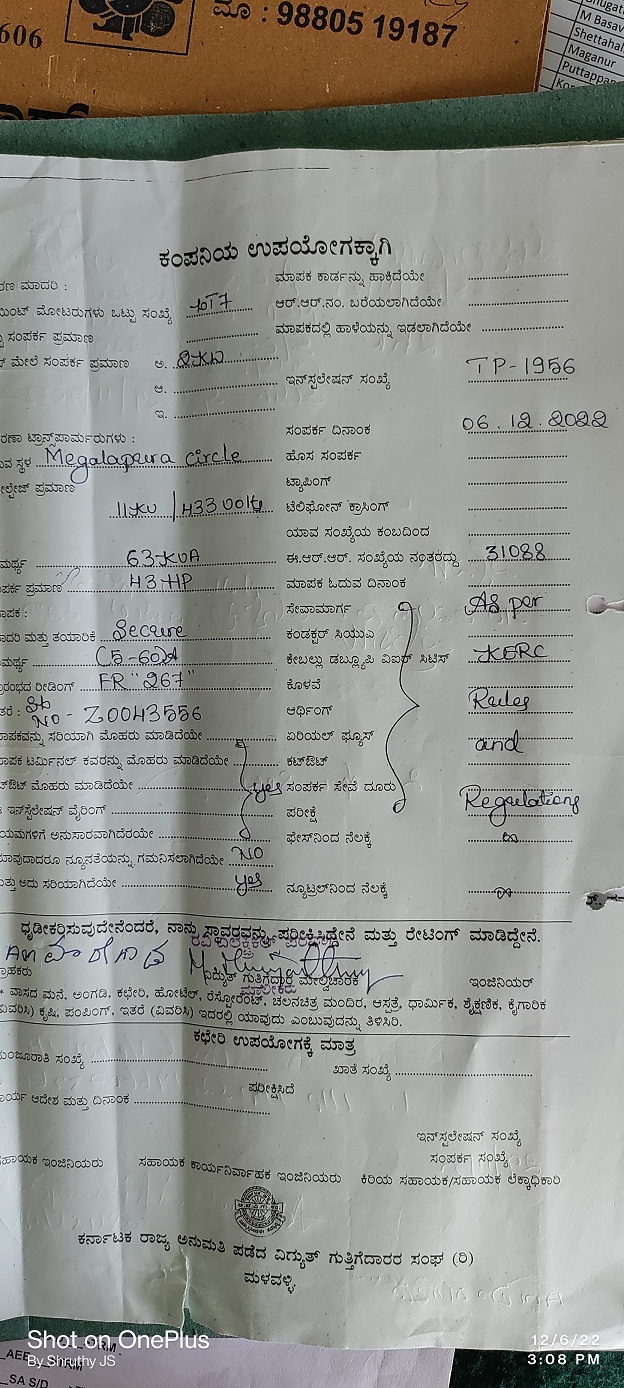 606
ಮೊ : 98805 19187
M Basav
Maganur
Puttappan
ಕಂಪನಿಯ ಉಪಯೋಗಕ್ಕಾಗಿ
ರಣ ಮಾದರಿ :
ಮಾಪಕ ಕಾರ್ಡನ್ನು ಹಾಕಿದೆಯೇ
ಯಿಂಟ್ ಮೋಟರುಗಳು ಒಟ್ಟು ಸಂಖ್ಯೆ
ಆರ್.ಆರ್.ನಂ. ಬರೆಯಲಾಗಿದೆಯೇ
ಸಂಪರ್ಕ ಪ್ರಮಾಣ
ಮಾಪಕದಲ್ಲಿ ಹಾಳೆಯನ್ನು ಇಡಲಾಗಿದೆಯೇ
ಮೇಲೆ ಸಂಪರ್ಕ ಪ್ರಮಾಣ ಅ. 2KW
ಆ.
ಇನ್‌ಸ್ಟಲೇಷನ್ ಸಂಖ್ಯೆ TP-1956
ಇ.
ಸಂಪರ್ಕ ದಿನಾಂಕ 06.12.2022
ರಣಾ ಟ್ರಾನ್ಸ್‌ಪಾರ್ಮರುಗಳು :
ಸ್ಥಳ Megalapura circle ಹೊಸ ಸಂಪರ್ಕ
ಲ್ಟೇಜ್ ಪ್ರಮಾಣ ಟ್ಯಾಪಿಂಗ್
11KV / 433 Volts ಟೆಲಿಫೋನ್ ಕ್ರಾಸಿಂಗ್
ಯಾವ ಸಂಖ್ಯೆಯ ಕಂಬದಿಂದ
ಮರ್ಥ್ಯ 63KVA ಈ.ಆರ್.ಆರ್. ಸಂಖ್ಯೆಯ ನಂತರದ್ದು 31088
ಪರ್ಕ ಪ್ರಮಾಣ 43HP ಮಾಪಕ ಓದುವ ದಿನಾಂಕ
ಾಪಕ : ಸೇವಾಮಾರ್ಗ As per
ಾದರಿ ಮತ್ತು ತಯಾರಿಕೆ Secure ಕಂಡಕ್ಟರ್ ಸಿಯುಎ
ಮರ್ಥ್ಯ (5-60)A ಕೇಬಲ್ಲು ಡಬ್ಲ್ಯೂಪಿ ವಿಐಆರ್ ಸಿಟಿಸ್ KERC
ರಂಭದ ರೀಡಿಂಗ್ FR "267" ಕೊಳವೆ
ತರೆ : Sl No - Z0043556 ಆರ್ಥಿಂಗ್ Rules
ಾಪಕವನ್ನು ಸರಿಯಾಗಿ ಮೊಹರು ಮಾಡಿದೆಯೇ ಏರಿಯಲ್ ಫ್ಯೂಸ್
ಾಪಕ ಟರ್ಮಿನಲ್ ಕವರನ್ನು ಮೊಹರು ಮಾಡಿದೆಯೇ ಕಟ್‌ಔಟ್ and
ಟ್‌ಔಟ್ ಮೊಹರು ಮಾಡಿದೆಯೇ yes ಸಂಪರ್ಕ ಸೇವೆ ದೂರು
ಇನ್‌ಸ್ಟಲೇಷನ್ ವೈರಿಂಗ್ ಪರೀಕ್ಷೆ Regulations
ಯಮಗಳಿಗೆ ಅನುಸಾರವಾಗಿದೆಯೇ ಫೇಸ್‌ನಿಂದ ನೆಲಕ್ಕೆ ∞
ಾವುದಾದರೂ ನ್ಯೂನತೆಯನ್ನು ಗಮನಿಸಲಾಗಿದೆಯೇ NO
ತ್ತು ಅದು ಸರಿಯಾಗಿದೆಯೇ yes ನ್ಯೂಟ್ರಲ್‌ನಿಂದ ನೆಲಕ್ಕೆ ∞
ಧೃಡೀಕರಿಸುವುದೇನೆಂದರೆ, ನಾನು ಸ್ಥಾವರವನ್ನು ಪರೀಕ್ಷಿಸಿದ್ದೇನೆ ಮತ್ತು ರೇಟಿಂಗ್ ಮಾಡಿದ್ದೇನೆ.
ಾಹಕರು ವಿದ್ಯುತ್ ಗುತ್ತಿಗೆದಾರ ಮೇಲ್ವಿಚಾರಕ ಇಂಜಿನಿಯರ್
* ವಾಸದ ಮನೆ, ಅಂಗಡಿ, ಕಛೇರಿ, ಹೋಟೆಲ್, ರೆಸ್ಟೋರೆಂಟ್, ಚಲನಚಿತ್ರ ಮಂದಿರ, ಆಸ್ಪತ್ರೆ, ಧಾರ್ಮಿಕ, ಶೈಕ್ಷಣಿಕ, ಕೈಗಾರಿಕ
ವಿವರಿಸಿ) ಕೃಷಿ, ಪಂಪಿಂಗ್, ಇತರೆ (ವಿವರಿಸಿ) ಇದರಲ್ಲಿ ಯಾವುದು ಎಂಬುವುದನ್ನು ತಿಳಿಸಿರಿ.
ಕಛೇರಿ ಉಪಯೋಗಕ್ಕೆ ಮಾತ್ರ
ಂಜೂರಾತಿ ಸಂಖ್ಯೆ ಖಾತೆ ಸಂಖ್ಯೆ
ಪರೀಕ್ಷಿಸಿದೆ
ಾರ್ಯ ಆದೇಶ ಮತ್ತು ದಿನಾಂಕ
ಇನ್‌ಸ್ಟಲೇಷನ್ ಸಂಖ್ಯೆ
ಸಂಪರ್ಕ ಸಂಖ್ಯೆ
ಹಾಯಕ ಇಂಜಿನಿಯರು ಸಹಾಯಕ ಕಾರ್ಯನಿರ್ವಾಹಕ ಇಂಜಿನಿಯರು ಕಿರಿಯ ಸಹಾಯಕ/ಸಹಾಯಕ ಲೆಕ್ಕಾಧಿಕಾರಿ
ಕರ್ನಾಟಕ ರಾಜ್ಯ ಅನುಮತಿ ಪಡೆದ ವಿದ್ಯುತ್ ಗುತ್ತಿಗೆದಾರರ ಸಂಘ (ರಿ)
ಮಳವಳ್ಳಿ
Shot on OnePlus
By Shruthy JS
12/6/22
3:08 PM
_AEE
_SA S/D